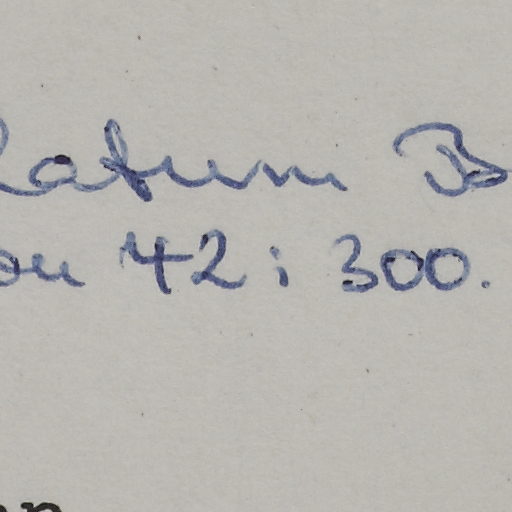 latum B
ou 42 : 300.